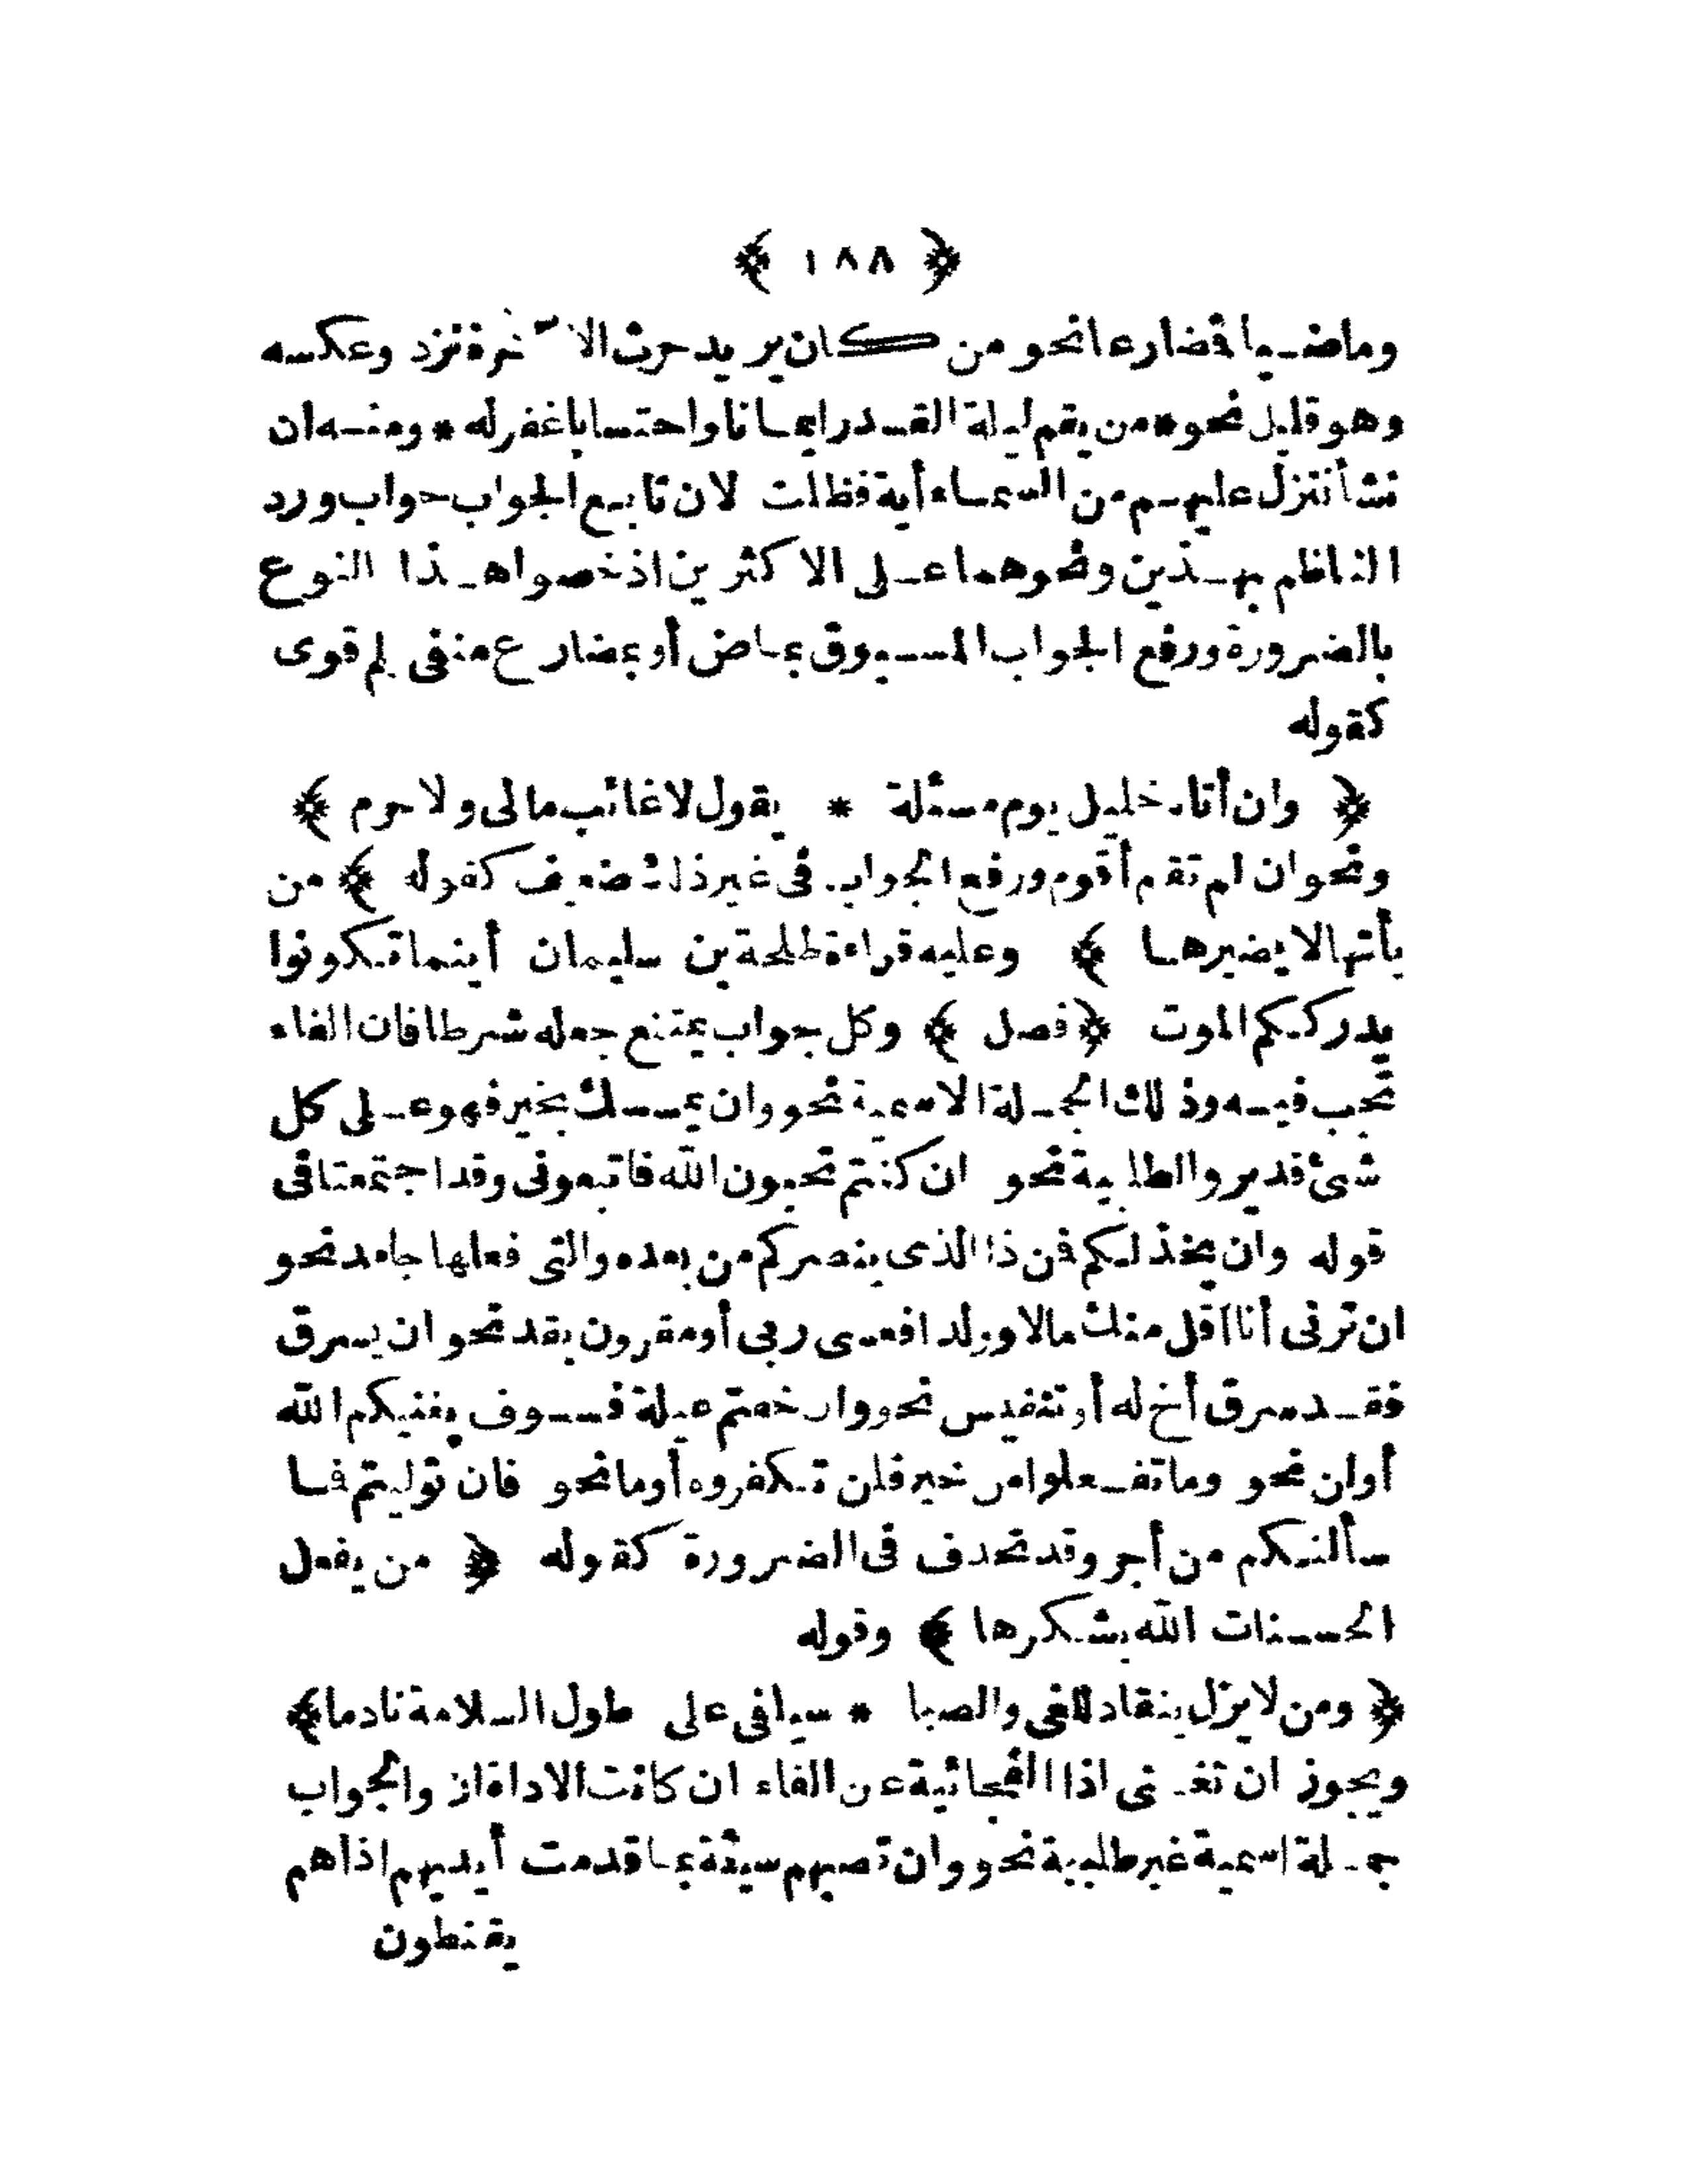 ﴿ ١٨٨ ﴾
وماضيا فضارعا نحو من كان يريد حرث الآخرة نزد وعكسه
وهو قليل نحو * من يقم ليلة القدر ايمانا واحتسابا غفر له * ومنه ان
نشأ ننزل عليهم من السماء أية فظلت لان تابع الجواب جواب ورد
الناظم بهذين ونحوهما على الاكثرين اذ خصوا هذا النوع
بالضرورة ورفع الجواب المسبوق بماض أو بمضارع منفى بلم قوى
كقوله
﴿ وان أتاه خليل يوم مسئلة * يقول لا غائب مالى ولا حرم ﴾
ونحو ان لم تقم أقوم ورفع الجواب فى غير ذلك ضعيف كقوله ﴾ من
يأتها لا يضيرها ﴾ وعليه قراءة طلحة بن سليمان أينما تكونوا
يدرككم الموت ﴿ فصل ﴾ وكل جواب يمتنع جعله شرطا فان الفاء
تجب فيه وذلك الجملة الاسمية نحو وان يمسسك بخير فهو على كل
شئ قدير والطلبية نحو ان كنتم تحبون الله فاتبعونى وقد اجتمعتا فى
قوله وان يخذلكم فن ذا الذى ينصركم من بعده والتى فعلها جامد نحو
ان ترنى أنا اقل منك مالا وولدا فعسى ربى أو مقرون بقد نحو ان يسرق
فقد سرق أخ له أو تنفيس نحو وان خفتم عيلة فسوف يغنيكم الله
أو لن نحو وما تفعلوا من خير فلن تكفروه أو ما نحو فان توليتم فا
سألتكم من أجر وقد تحذف فى الضرورة كقوله ﴿ من يفعل
الحسنات الله يشكرها ﴾ وقوله
﴿ ومن لا يزل ينقاد للغى والصبا * سيلفى على طول السلامة نادما ﴾
ويجوز ان تغنى اذا الفجائية عن الفاء ان كانت الاداة ان والجواب
جملة اسمية غير طلبية نحو وان تصبهم سيئة بما قدمت أيديهم اذا هم
يقنطون